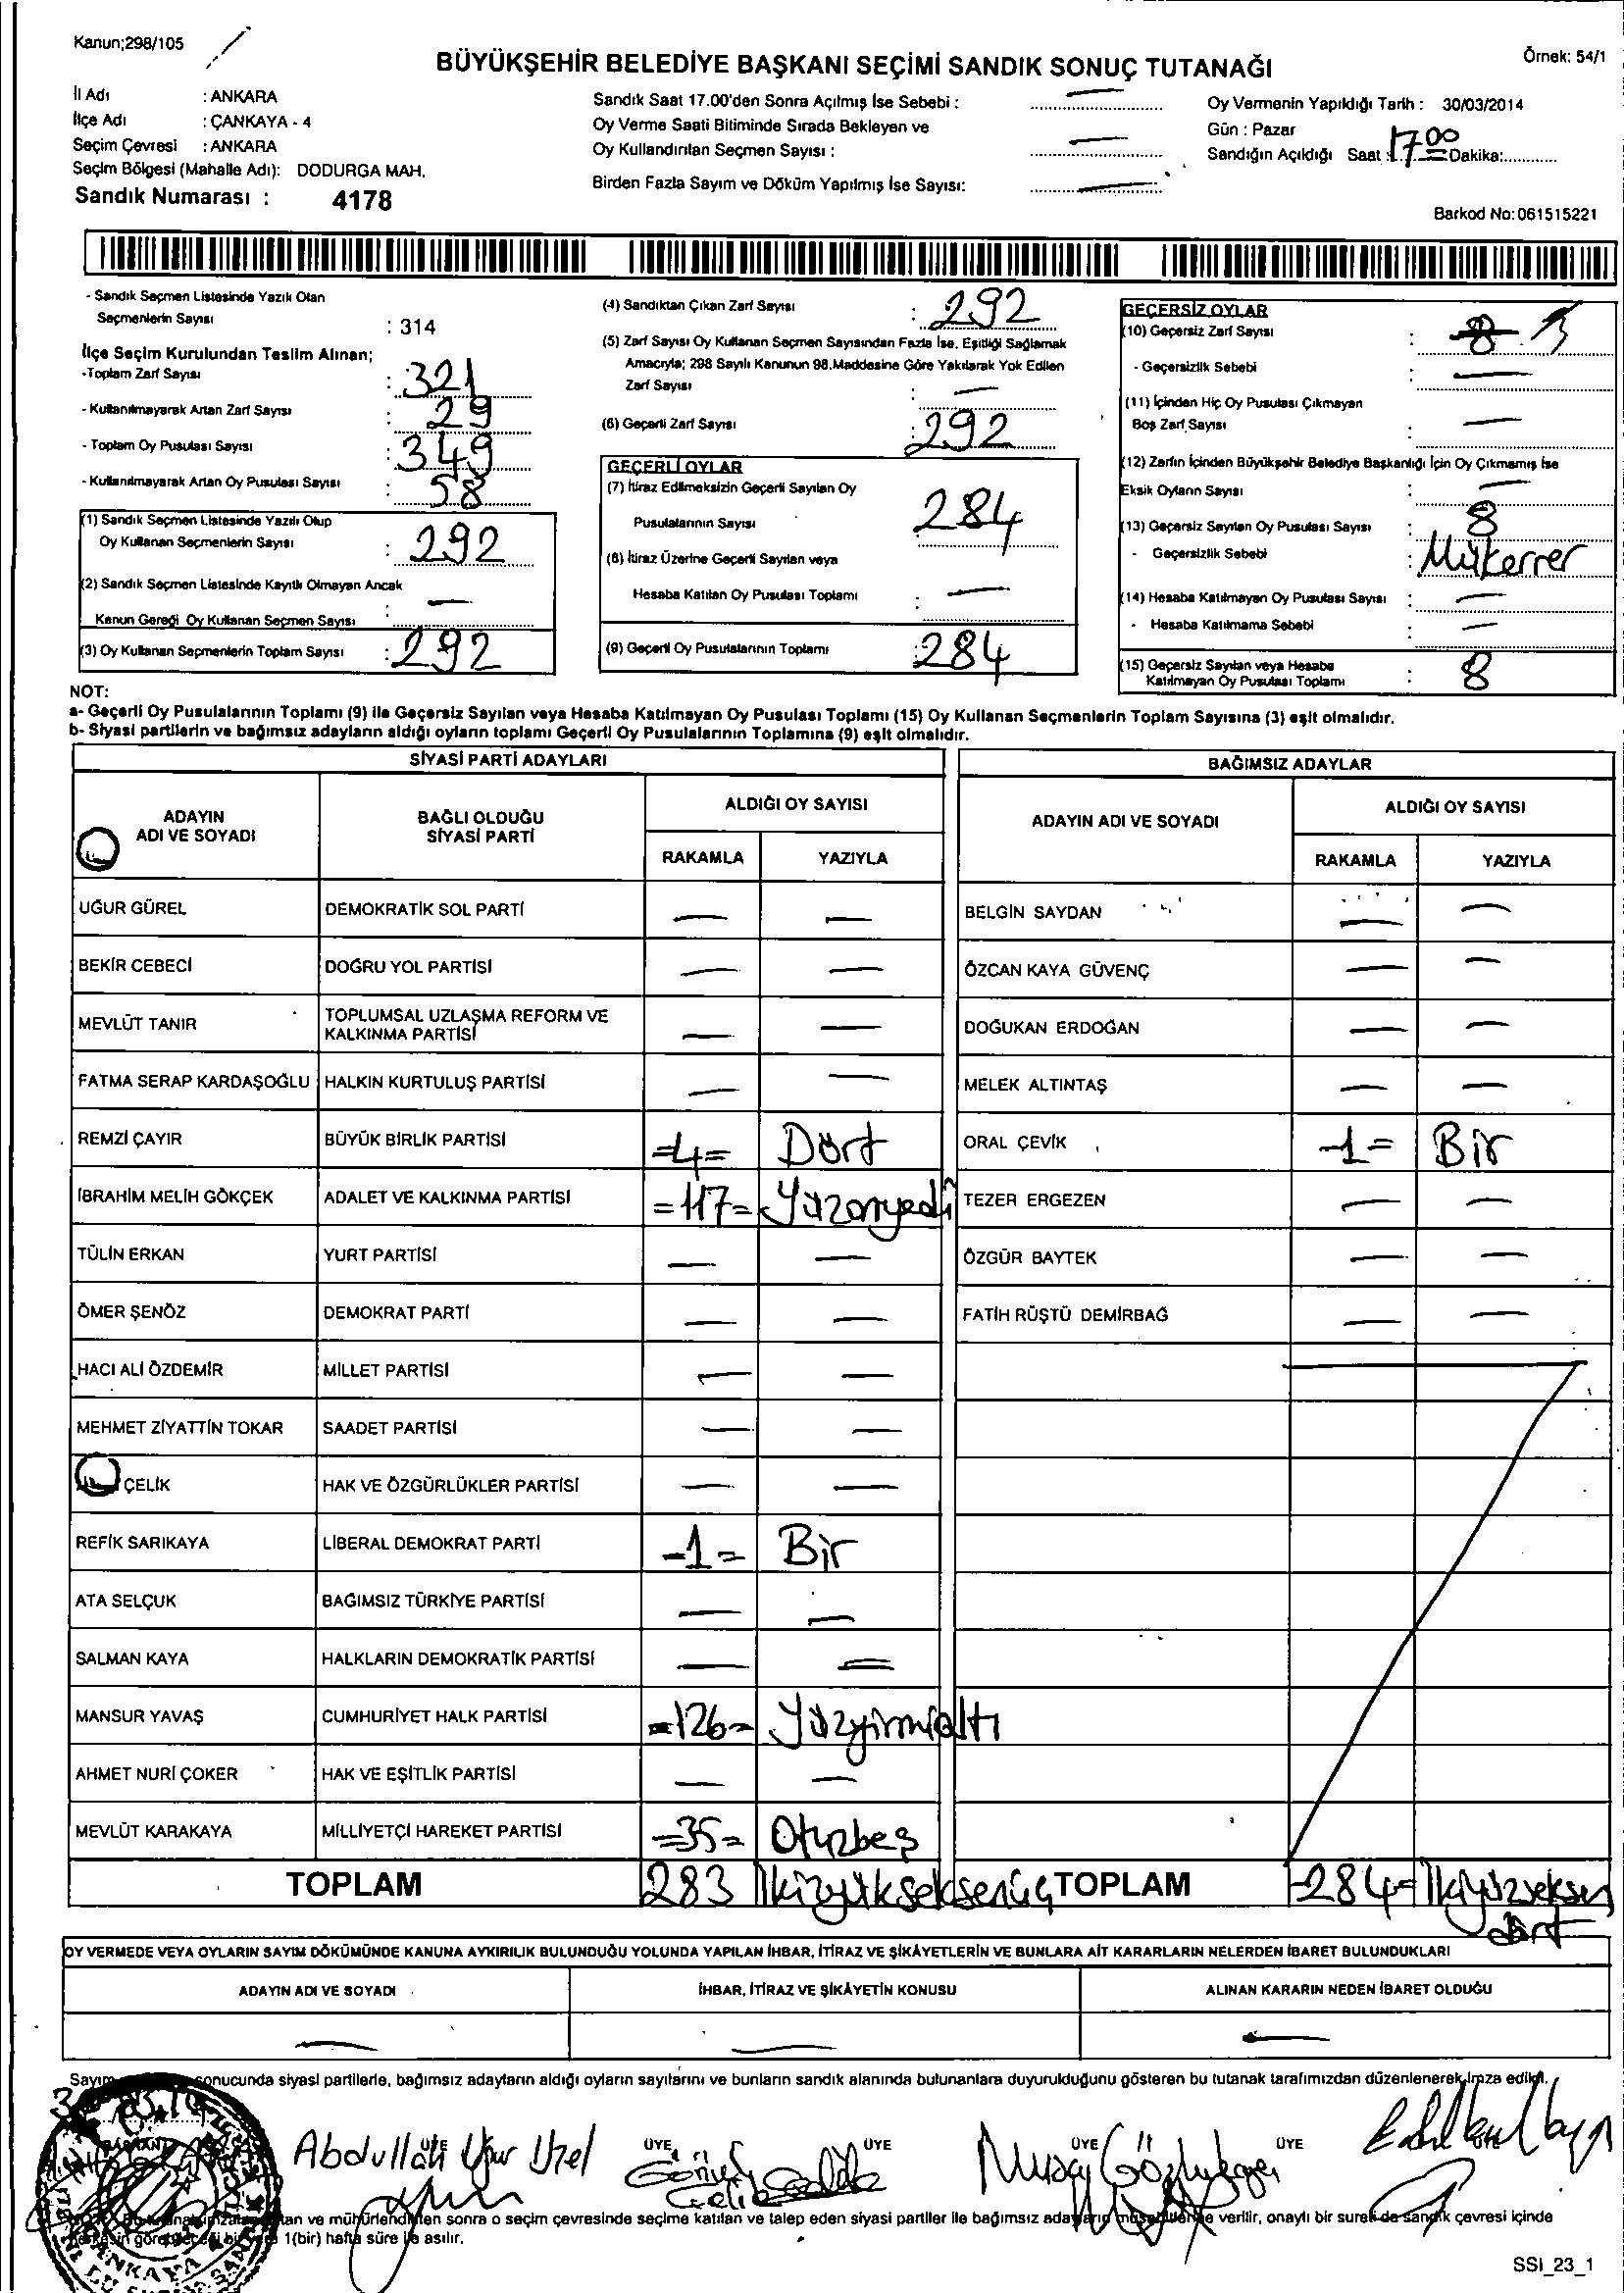 Kanun;298/105
BÜYÜKŞEHİR BELEDİYE BAŞKANI SEÇİMİ SANDIK SONUÇ TUTANAĞI
Örnek: 54/1
İl Adı : ANKARA
İlçe Adı : ÇANKAYA - 4
Seçim Çevresi : ANKARA
Seçim Bölgesi (Mahalle Adı): DODURGA MAH.
Sandık Numarası : 4178
Sandık Saat 17.00'den Sonra Açılmış İse Sebebi :
Oy Verme Saati Bitiminde Sırada Bekleyen ve
Oy Kullandırılan Seçmen Sayısı :
Birden Fazla Sayım ve Döküm Yapılmış İse Sayısı:
Oy Vermenin Yapıldığı Tarih : 30/03/2014
Gün : Pazar
Sandığın Açıldığı Saat : 17 00 Dakika:
Barkod No: 061515221
- Sandık Seçmen Listesinde Yazılı Olan
Seçmenlerin Sayısı : 314
İlçe Seçim Kurulundan Teslim Alınan;
-Toplam Zarf Sayısı : 321
- Kullanılmayarak Artan Zarf Sayısı : 29
- Toplam Oy Pusulası Sayısı : 349
- Kullanılmayarak Artan Oy Pusulası Sayısı : 58
(1) Sandık Seçmen Listesinde Yazılı Olup
Oy Kullanan Seçmenlerin Sayısı : 292
(2) Sandık Seçmen Listesinde Kayıtlı Olmayan Ancak
Kanun Gereği Oy Kullanan Seçmen Sayısı : —
(3) Oy Kullanan Seçmenlerin Toplam Sayısı : 292
(4) Sandıktan Çıkan Zarf Sayısı : 292
(5) Zarf Sayısı Oy Kullanan Seçmen Sayısından Fazla İse, Eşitliği Sağlamak
Amacıyla; 298 Sayılı Kanunun 98.Maddesine Göre Yakılarak Yok Edilen
Zarf Sayısı : —
(6) Geçerli Zarf Sayısı : 292
GEÇERLİ OYLAR
(7) İtiraz Edilmeksizin Geçerli Sayılan Oy
Pusulalarının Sayısı : 284
(8) İtiraz Üzerine Geçerli Sayılan veya
Hesaba Katılan Oy Pusulası Toplamı : —
(9) Geçerli Oy Pusulalarının Toplamı : 284
GEÇERSİZ OYLAR
(10) Geçersiz Zarf Sayısı : 8
- Geçersizlik Sebebi : —
(11) İçinden Hiç Oy Pusulası Çıkmayan
Boş Zarf Sayısı : —
(12) Zarfın İçinden Büyükşehir Belediye Başkanlığı İçin Oy Çıkmamış İse
Eksik Oyların Sayısı : —
(13) Geçersiz Sayılan Oy Pusulası Sayısı : 8
- Geçersizlik Sebebi : Mükerrer
(14) Hesaba Katılmayan Oy Pusulası Sayısı : —
- Hesaba Katılmama Sebebi : —
(15) Geçersiz Sayılan veya Hesaba
Katılmayan Oy Pusulası Toplamı : 8
NOT:
a- Geçerli Oy Pusulalarının Toplamı (9) ile Geçersiz Sayılan veya Hesaba Katılmayan Oy Pusulası Toplamı (15) Oy Kullanan Seçmenlerin Toplam Sayısına (3) eşit olmalıdır.
b- Siyasi partilerin ve bağımsız adayların aldığı oyların toplamı Geçerli Oy Pusulalarının Toplamına (9) eşit olmalıdır.
SİYASİ PARTİ ADAYLARI
ADAYIN ADI VE SOYADI
BAĞLI OLDUĞU SİYASİ PARTİ
ALDIĞI OY SAYISI
RAKAMLA YAZIYLA
UĞUR GÜREL DEMOKRATİK SOL PARTİ — —
BEKİR CEBECİ DOĞRU YOL PARTİSİ — —
MEVLÜT TANIR TOPLUMSAL UZLAŞMA REFORM VE KALKINMA PARTİSİ — —
FATMA SERAP KARDAŞOĞLU HALKIN KURTULUŞ PARTİSİ — —
REMZİ ÇAYIR BÜYÜK BİRLİK PARTİSİ =4= Dört
İBRAHİM MELİH GÖKÇEK ADALET VE KALKINMA PARTİSİ =117= Yüzonyedi
TÜLİN ERKAN YURT PARTİSİ — —
ÖMER ŞENÖZ DEMOKRAT PARTİ — —
HACI ALİ ÖZDEMİR MİLLET PARTİSİ — —
MEHMET ZİYATTİN TOKAR SAADET PARTİSİ — —
ÇELİK HAK VE ÖZGÜRLÜKLER PARTİSİ — —
REFİK SARIKAYA LİBERAL DEMOKRAT PARTİ -1= Bir
ATA SELÇUK BAĞIMSIZ TÜRKİYE PARTİSİ — —
SALMAN KAYA HALKLARIN DEMOKRATİK PARTİSİ — —
MANSUR YAVAŞ CUMHURİYET HALK PARTİSİ =126= Yüzyirmialtı
AHMET NURİ ÇOKER HAK VE EŞİTLİK PARTİSİ — —
MEVLÜT KARAKAYA MİLLİYETÇİ HAREKET PARTİSİ =35= Otuzbeş
TOPLAM 283 İkizyükseksenüç
BAĞIMSIZ ADAYLAR
ADAYIN ADI VE SOYADI
ALDIĞI OY SAYISI
RAKAMLA YAZIYLA
BELGİN SAYDAN — —
ÖZCAN KAYA GÜVENÇ — —
DOĞUKAN ERDOĞAN — —
MELEK ALTINTAŞ — —
ORAL ÇEVİK -1= Bir
TEZER ERGEZEN — —
ÖZGÜR BAYTEK — —
FATİH RÜŞTÜ DEMİRBAĞ — —
TOPLAM -284= İkiyüzseksen dört
OY VERMEDE VEYA OYLARIN SAYIM DÖKÜMÜNDE KANUNA AYKIRILIK BULUNDUĞU YOLUNDA YAPILAN İHBAR, İTİRAZ VE ŞİKÂYETLERİN VE BUNLARA AİT KARARLARIN NELERDEN İBARET BULUNDUKLARI
ADAYIN ADI VE SOYADI İHBAR, İTİRAZ VE ŞİKÂYETİN KONUSU ALINAN KARARIN NEDEN İBARET OLDUĞU
— — —
Sayım sonucunda siyasi partilerle, bağımsız adayların aldığı oyların sayılarını ve bunların sandık alanında bulunanlara duyurulduğunu gösteren bu tutanak tarafımızdan düzenlenerek imza edildi.
ÜYE ÜYE ÜYE ÜYE ÜYE
Abdullah Uğur Uzel
ve mühürlendikten sonra o seçim çevresinde seçime katılan ve talep eden siyasi partiler ile bağımsız adayların müşahitlerine verilir, onaylı bir sureti de sandık çevresi içinde
1(bir) hafta süre ile asılır.
SSI_23_1